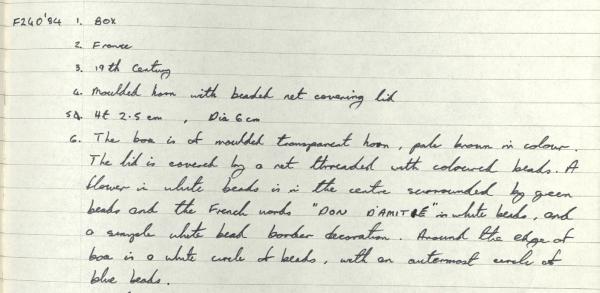 F240'84 1. Box
2. France
3. 19th Century
4. Moulded horn with beaded net covering lid
5A. Ht 2.5 cm , Dia 6cm
6. The box is of moulded transparent horn, pale brown in colour.
The lid is covered by a net threaded with coloured beads. A
flower in white beads is in the centre surrounded by green
beads and the French words "DON D'AMITIÉ" in white beads, and
a simple white bead border decoration. Around the edge of
box is a white circle of beads, with an outermost circle of
blue beads.